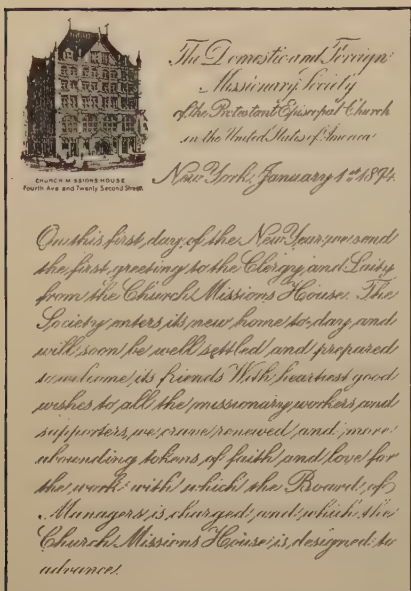 The Domestic and Foreign
Missionary Society
of the Protestant Episcopal Church
in the United States of America
CHURCH MISSIONS HOUSE
Fourth Ave and Twenty Second Street.
New York, January 1st 1894.
On this first day, of the New Year, we send
the first greeting to the Clergy and Laity
from the Church Missions House. The
Society enters its new home to-day, and
will soon be well settled and prepared
to welcome its friends With heartiest good
wishes to all the missionary workers and
supporters, we crave renewed and more
abounding tokens of faith and love for
the work with which the Board of
Managers is charged, and which the
Church Missions House is designed to
advance.